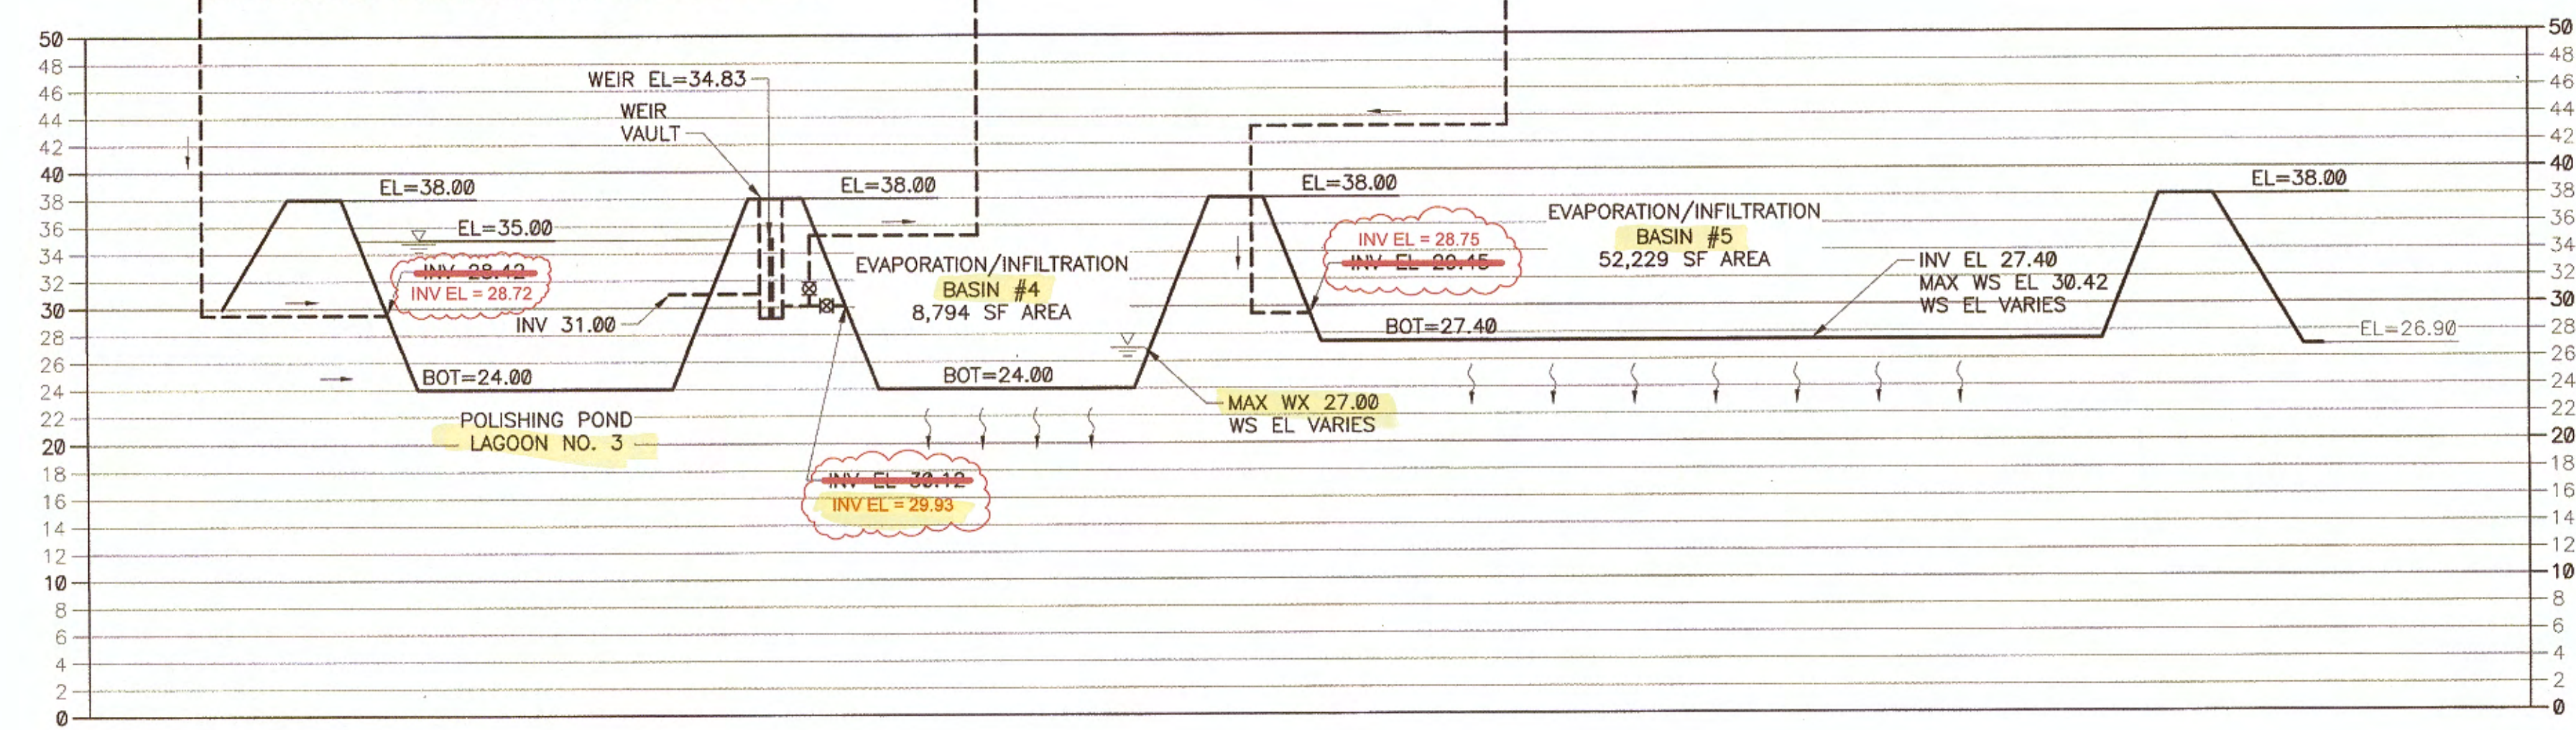 50
48
46
44
42
40
38
36
34
32
30
28
26
24
22
20
18
16
14
12
10
8
6
4
2
0
WEIR EL=34.83
WEIR
VAULT
EL=38.00
EL=35.00
INV 28.42
INV EL = 28.72
INV 31.00
BOT=24.00
POLISHING POND
LAGOON NO. 3
EL=38.00
EVAPORATION/INFILTRATION
BASIN #4
8,794 SF AREA
BOT=24.00
INV EL 30.12
INV EL = 29.93
MAX WX 27.00
WS EL VARIES
EL=38.00
INV EL = 28.75
INV EL 29.45
EVAPORATION/INFILTRATION
BASIN #5
52,229 SF AREA
BOT=27.40
INV EL 27.40
MAX WS EL 30.42
WS EL VARIES
EL=38.00
EL=26.90
50
48
46
44
42
40
38
36
34
32
30
28
26
24
22
20
18
16
14
12
10
8
6
4
2
0